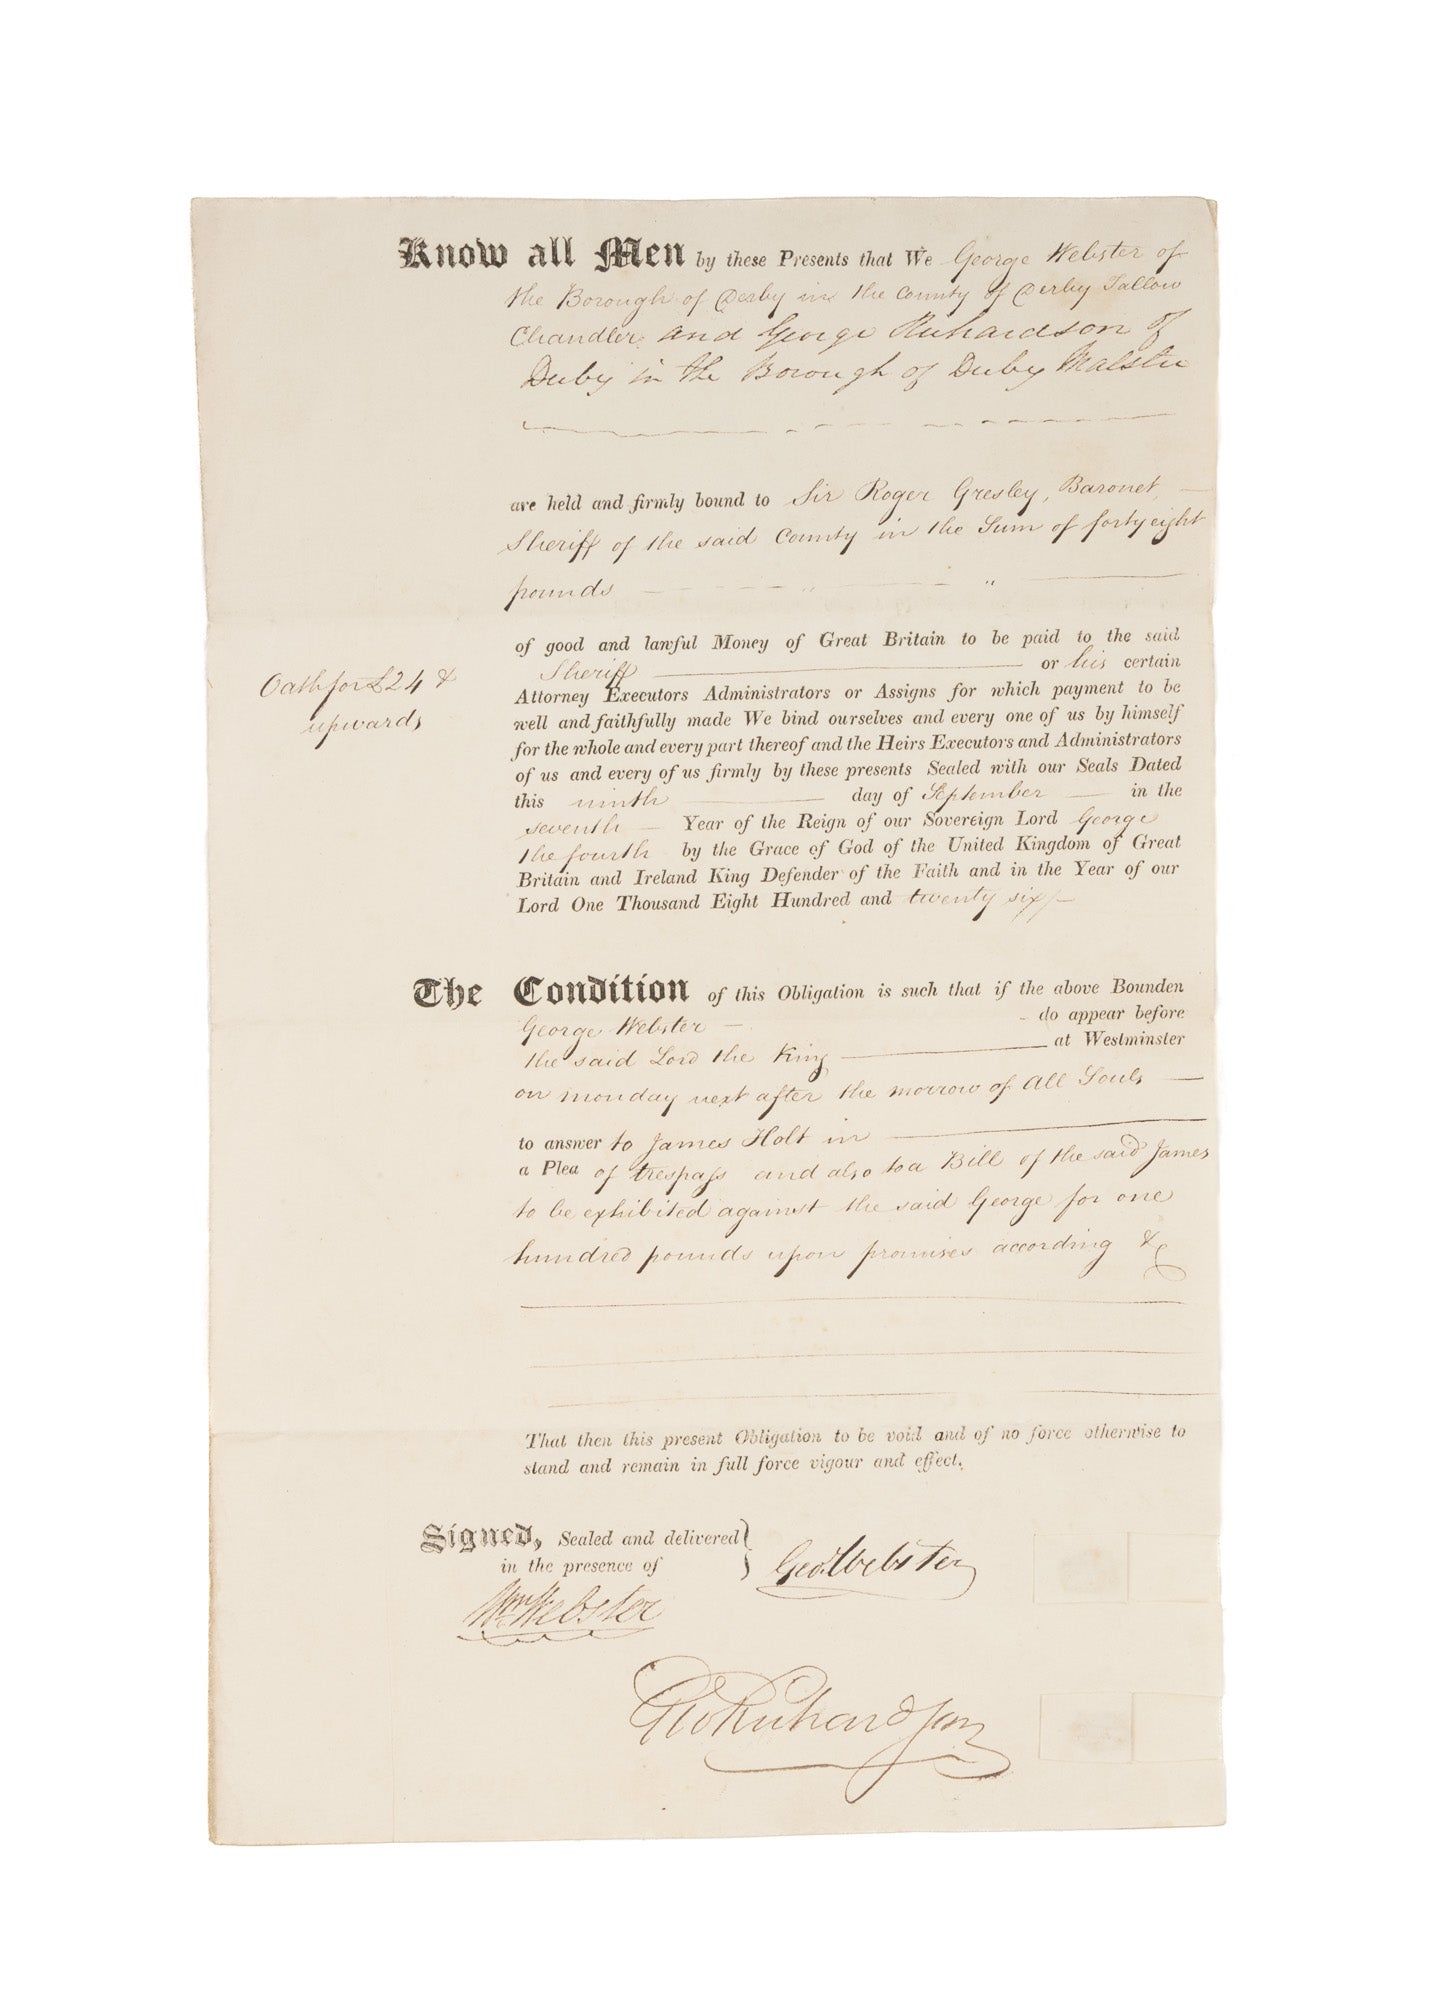 Know all Men by these Presents that We George Webster of
the Borough of Derby in the County of Derby Tallow
Chandler and George Richardson of
Derby in the Borough of Derby Malster
are held and firmly bound to Sir Roger Gresley, Baronet,
Sheriff of the said County in the Sum of forty eight
pounds
of good and lawful Money of Great Britain to be paid to the said
Sheriff or his certain
Oath for £24 &
upwards
Attorney Executors Administrators or Assigns for which payment to be
well and faithfully made We bind ourselves and every one of us by himself
for the whole and every part thereof and the Heirs Executors and Administrators
of us and every of us firmly by these presents Sealed with our Seals Dated
this ninth day of September in the
seventh Year of the Reign of our Sovereign Lord George
the fourth by the Grace of God of the United Kingdom of Great
Britain and Ireland King Defender of the Faith and in the Year of our
Lord One Thousand Eight Hundred and twenty six
The Condition of this Obligation is such that if the above Bounden
George Webster do appear before
the said Lord the King at Westminster
on monday next after the morrow of All Souls
to answer to James Holt in
a Plea of trespass and also to a Bill of the said James
to be exhibited against the said George for one
hundred pounds upon promises according &c
That then this present Obligation to be void and of no force otherwise to
stand and remain in full force vigour and effect.
Signed, Sealed and delivered
in the presence of
Geo. Webster
Wm. Webster
Geo Richardson